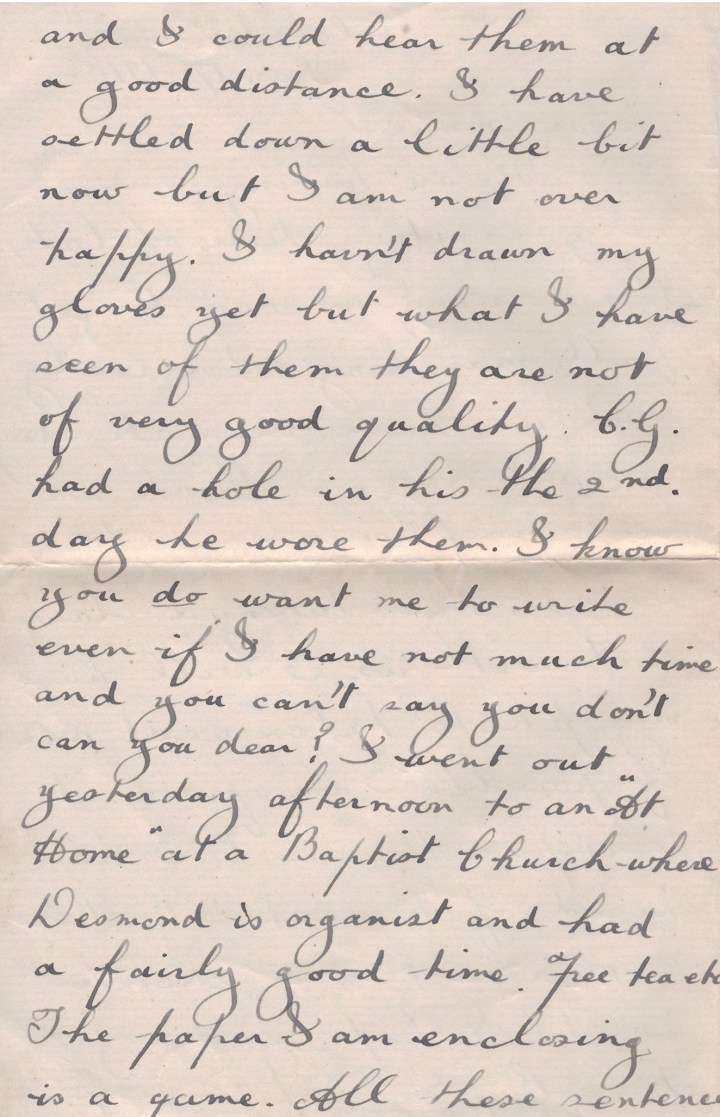 and I could hear them at
a good distance. I have
settled down a little bit
now but I am not over
happy. I havn't drawn my
gloves yet but what I have
seen of them they are not
of very good quality. C.G.
had a hole in his the 2nd.
day he wore them. I know
you do want me to write
even if I have not much time
and you can't say you don't
can you dear? I went out
yesterday afternoon to an "At
Home" at a Baptist Church where
Desmond is organist and had
a fairly good time. Free tea etc
The paper I am enclosing
is a game. All these sentenc